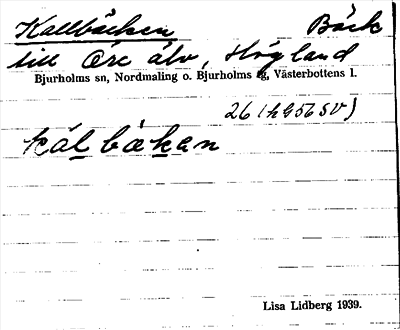 Kallbäcken Bäck
till Öre älv, Högland
Bjurholms sn, Nordmaling o. Bjurholms tg, Västerbottens l.
26 (h 956 SV)
kálbäkan
Lisa Lidberg 1939.